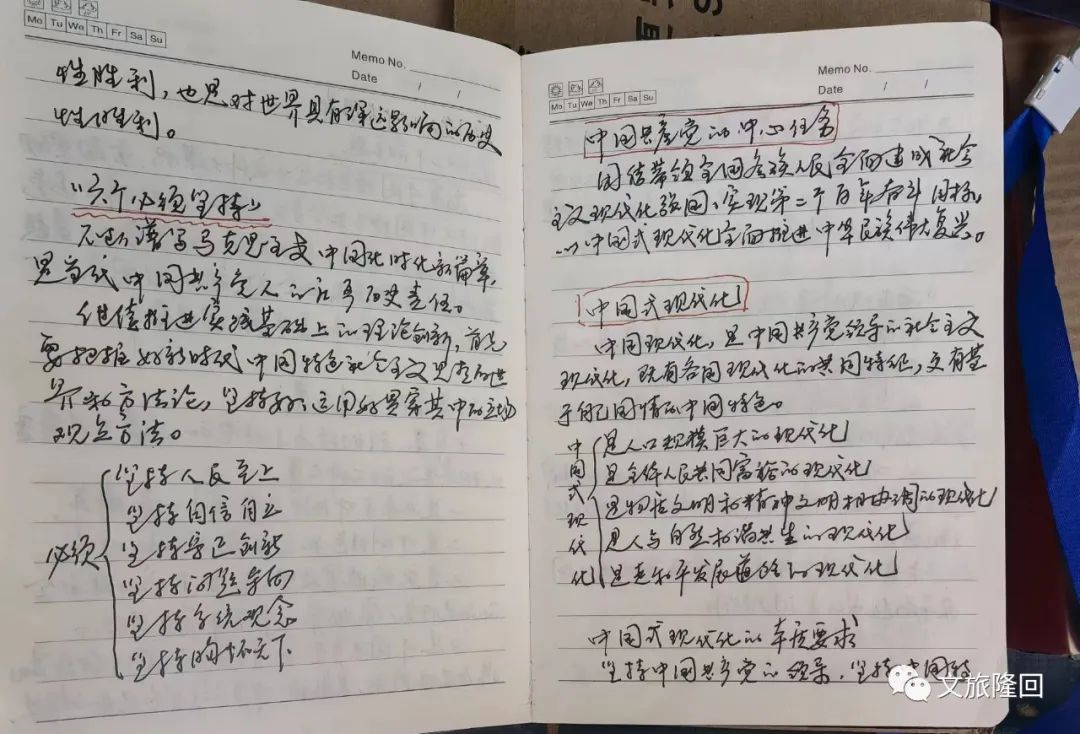 Mo Tu We Th Fr Sa Su
Memo No.
Date / /
性胜利，也是对世界具有深远影响的历史
性胜利。
"六个必须坚持"
不断谱写马克思主义中国化时代化新篇章，
是当代中国共产党人的庄严历史责任。
继续推进实践基础上的理论创新，首先
要把握好新时代中国特色社会主义思想的世
界观和方法论，坚持好、运用好贯穿其中的立场
观点方法。
必须
坚持人民至上
坚持自信自立
坚持守正创新
坚持问题导向
坚持系统观念
坚持胸怀天下
Mo Tu We Th Fr Sa Su
Memo No.
Date / /
中国共产党的中心任务
团结带领全国各族人民全面建成社会
主义现代化强国、实现第二个百年奋斗目标，
以中国式现代化全面推进中华民族伟大复兴。
中国式现代化
中国现代化，是中国共产党领导的社会主义
现代化，既有各国现代化的共同特征，又有基
于自己国情的中国特色。
中国式现代化
是人口规模巨大的现代化
是全体人民共同富裕的现代化
是物质文明和精神文明相协调的现代化
是人与自然和谐共生的现代化
是走和平发展道路的现代化
中国式现代化的本质要求
坚持中国共产党的领导，坚持中国特
文旅隆回